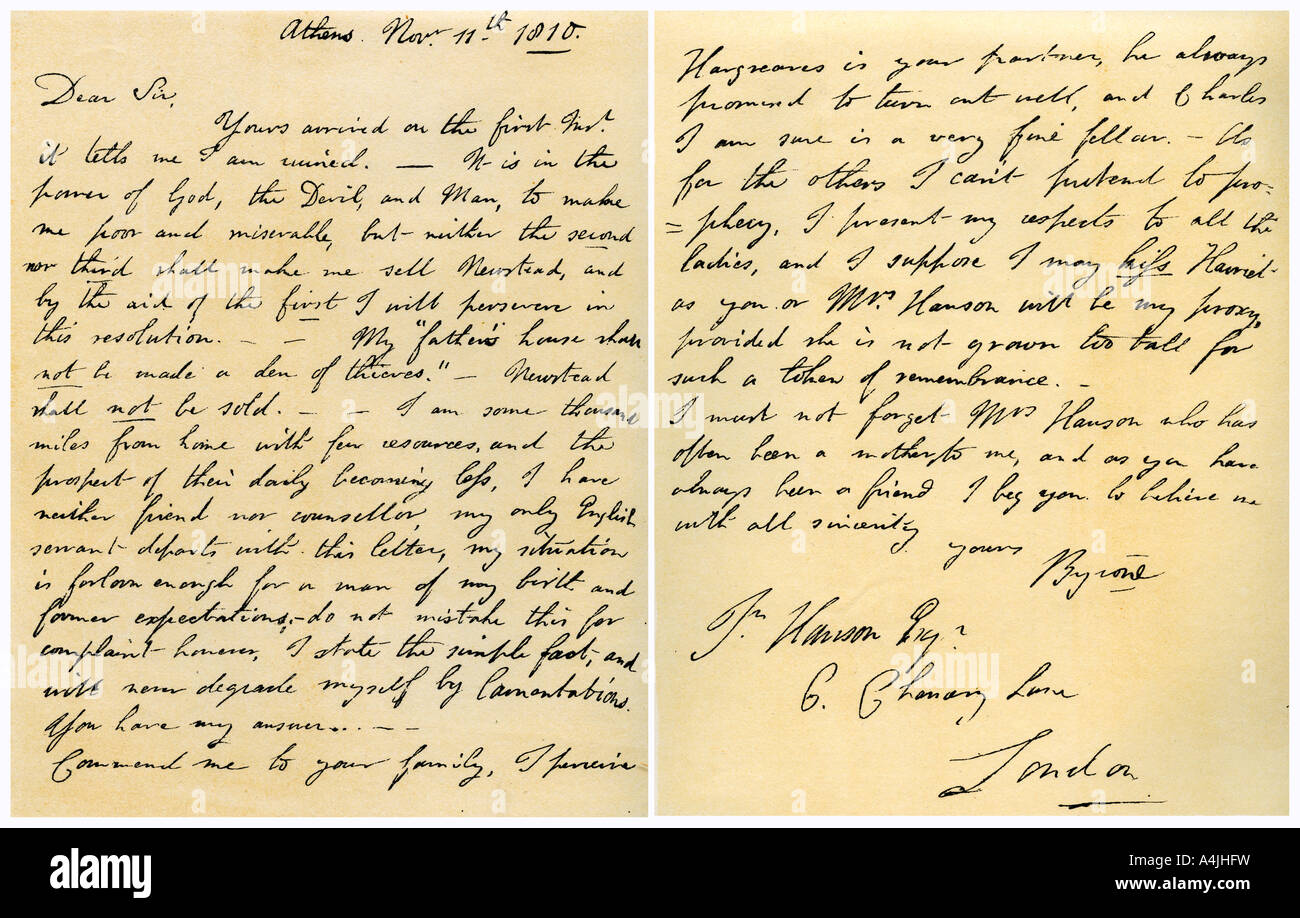 Athens. Novr. 11th 1810.
Dear Sir,
Yours arrived on the first Inst.
it tells me I am ruined. — It is in the
power of God, the Devil, and Man, to make
me poor and miserable, but neither the second
nor third shall make me sell Newstead, and
by the aid of the first I will persevere in
this resolution. — — My "father's house shall
not be made a den of thieves." — Newstead
shall not be sold. — — I am some thousand
miles from home with few resources, and the
prospect of their daily becoming less, I have
neither friend nor counsellor, my only English
servant departs with this letter, my situation
is forlorn enough for a man of my birth and
former expectations; — do not mistake this for
complaint however, I state the simple fact, and
will never degrade myself by Lamentations.
You have my answer. . . — —
Commend me to your family, I perceive
Hargreaves is your partner, he always
promised to turn out well, and Charles
I am sure is a very fine fellow. — As
for the others I can't pretend to pro=
=phecy, I present my respects to all the
ladies, and I suppose I may kiss Harriet
as you or Mrs. Hanson will be my proxy,
provided she is not grown too tall for
such a token of remembrance. —
I must not forget Mrs Hanson who has
often been a mother to me, and as you have
always been a friend I beg you to believe me
with all sincerity
yours
Byron
Jn Hanson Esqr
6. Chancery Lane
London
alamy
Image ID: A4JHFW
www.alamy.com